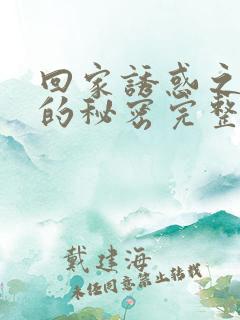 回家誘惑之
的秘密完整
戴建海
未经同意禁止转载